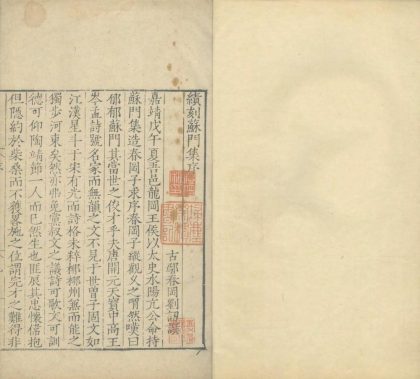 續刻蘇門集序
古鄢春岡劉訒撰
嘉靖戊午夏吾邑龍岡王侯以太史水陽亢公命持
蘇門集造春岡子求序春岡子縱觀乂之喟然嘆曰
郁郁蘇門其當世之俊才乎夫唐開元天寶中高王
岑孟詩號名家而無韻之文不見于世曾子固文如
江漢星斗于宋有光而詩格未粹柳柳州兼而能之
獨步河東矣然亦黨叔文之議詩可歌文可訓
德可仰陶靖節一人而已然生也匪辰其忠懷偉抱
但隱約於柴桑而不獲展施之位謂完才之難得非